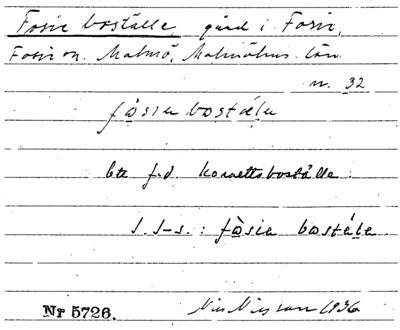 Fosie boställe, gård i Fosie,
Fosie sn. Malmö, Malmöhus län
n. 32
fo̱siɐ bostɛ́lɐ
f.d. kornettsboställe.
J. J-s.: fo̱sie bosté̱le.
Nr 5726.
Nils Nilsson 1936